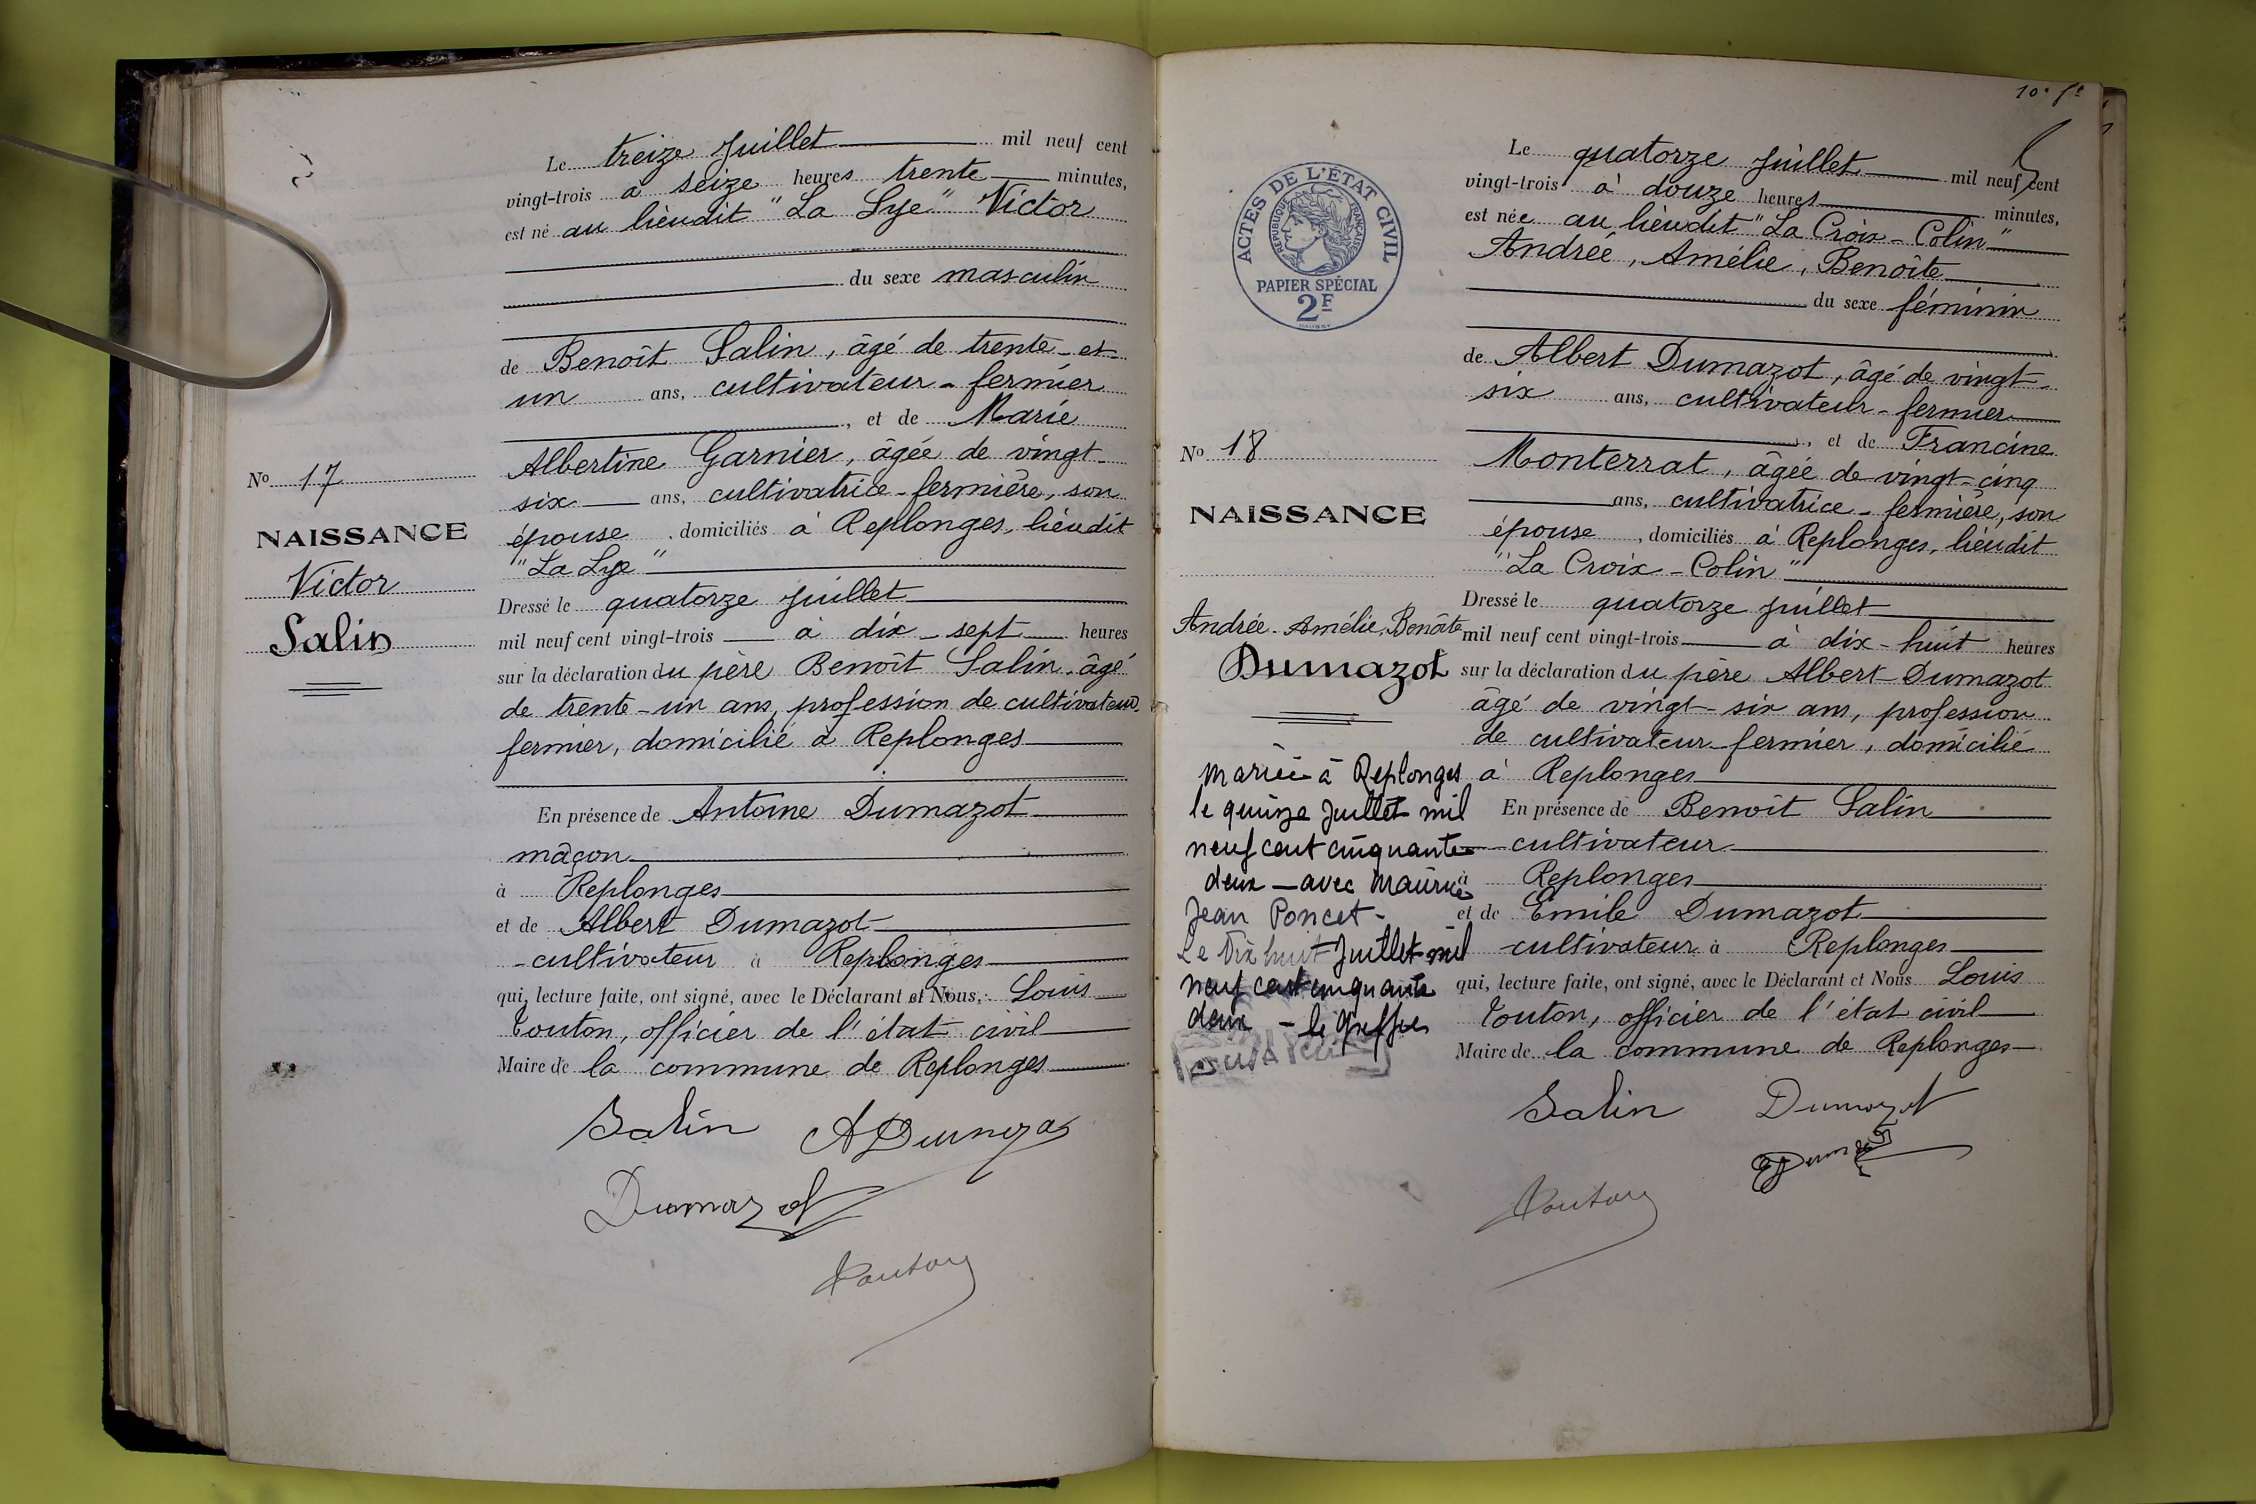 Le treize juillet mil neuf cent
vingt-trois à seize heures trente minutes,
est né au lieudit "La Lye" Victor
du sexe masculin
de Benoît Salin, âgé de trente-et-
un ans, cultivateur-fermier
, et de Marie
Albertine Garnier, âgée de vingt-
six ans, cultivatrice-fermière, son
épouse, domiciliés à Replonges, lieudit
"La Lye"
Dressé le quatorze juillet
mil neuf cent vingt-trois à dix-sept heures
sur la déclaration du père Benoît Salin, âgé
de trente-un ans, profession de cultivateur-
fermier, domicilié à Replonges
En présence de Antoine Dumazot
mâçon
à Replonges
et de Albert Dumazot
-cultivateur à Replonges
qui, lecture faite, ont signé, avec le Déclarant et Nous, Louis
Touton, officier de l'état civil
Maire de la commune de Replonges
Salin
Dumazot
Touton
No 17
NAISSANCE
Victor
Salin
10e
ACTES DE L'ÉTAT CIVIL
RÉPUBLIQUE FRANÇAISE
PAPIER SPÉCIAL
2F
Le quatorze juillet mil neuf cent
vingt-trois à douze heures minutes,
est née au lieudit "La Croix-Colin"
Andrée, Amélie, Benoîte
du sexe féminin
de Albert Dumazot, âgé de vingt-
six ans, cultivateur-fermier
, et de Francine
Monterrat, âgée de vingt-cinq
ans, cultivatrice-fermière, son
épouse, domiciliés à Replonges, lieudit
"La Croix-Colin"
Dressé le quatorze juillet
mil neuf cent vingt-trois à dix-huit heures
sur la déclaration du père Albert Dumazot
âgé de vingt-six ans, profession
de cultivateur-fermier, domicilié
à Replonges
En présence de Benoît Salin
cultivateur
à Replonges
et de Emile Dumazot
-cultivateur à Replonges
qui, lecture faite, ont signé, avec le Déclarant et Nous Louis
Touton, officier de l'état civil
Maire de la commune de Replonges
Salin Dumazot
Touton
No 18
NAISSANCE
Andrée-Amélie, Benoîte
Dumazot
Mariée à Replonges
le quinze Juillet mil
neuf cent cinquante
deux - avec Maurice
Jean Poncet -
Le Dix huit Juillet mil
neuf cent cinquante
deux - le Greffier